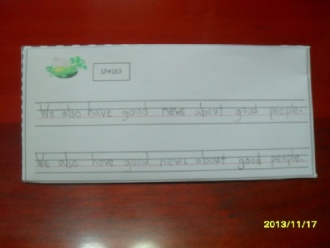 We also have good news about good people.
We also have good news about good people.
2013/11/17